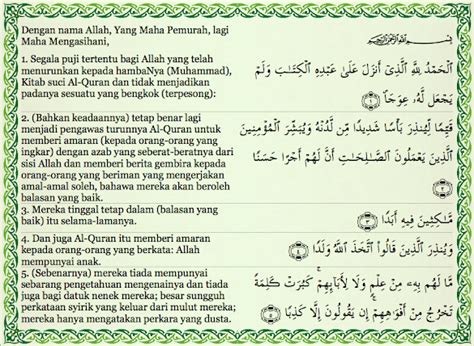 Dengan nama Allah, Yang Maha Pemurah, lagi
Maha Mengasihani,
1. Segala puji tertentu bagi Allah yang telah
menurunkan kepada hambaNya (Muhammad),
Kitab suci Al-Quran dan tidak menjadikan
padanya sesuatu yang bengkok (terpesong):
2. (Bahkan keadaannya) tetap benar lagi
menjadi pengawas turunnya Al-Quran untuk
memberi amaran (kepada orang-orang yang
ingkar) dengan azab yang seberat-beratnya dari
sisi Allah dan memberi berita gembira kepada
orang-orang yang beriman yang mengerjakan
amal-amal soleh, bahawa mereka akan beroleh
balasan yang baik.
3. Mereka tinggal tetap dalam (balasan yang
baik) itu selama-lamanya.
4. Dan juga Al-Quran itu memberi amaran
kepada orang-orang yang berkata: Allah
mempunyai anak.
5. (Sebenarnya) mereka tiada mempunyai
sebarang pengetahuan mengenainya dan tiada
juga bagi datuk nenek mereka; besar sungguh
perkataan syirik yang keluar dari mulut mereka;
mereka hanya mengatakan perkara yang dusta.
بِسْمِ اللَّهِ الرَّحْمَٰنِ الرَّحِيمِ
ٱلْحَمْدُ لِلَّهِ ٱلَّذِىٓ أَنزَلَ عَلَىٰ عَبْدِهِ ٱلْكِتَـٰبَ وَلَمْ
يَجْعَل لَّهُۥ عِوَجَا ۜ ١
قَيِّمًا لِّيُنذِرَ بَأْسًا شَدِيدًا مِّن لَّدُنْهُ وَيُبَشِّرَ ٱلْمُؤْمِنِينَ
ٱلَّذِينَ يَعْمَلُونَ ٱلصَّـٰلِحَـٰتِ أَنَّ لَهُمْ أَجْرًا حَسَنًا
٢
مَّـٰكِثِينَ فِيهِ أَبَدًا ٣
وَيُنذِرَ ٱلَّذِينَ قَالُوا۟ ٱتَّخَذَ ٱللَّهُ وَلَدًا ٤
مَّا لَهُم بِهِۦ مِنْ عِلْمٍ وَلَا لِـَٔابَآئِهِمْ ۚ كَبُرَتْ كَلِمَةً
تَخْرُجُ مِنْ أَفْوَٰهِهِمْ ۚ إِن يَقُولُونَ إِلَّا كَذِبًا ٥